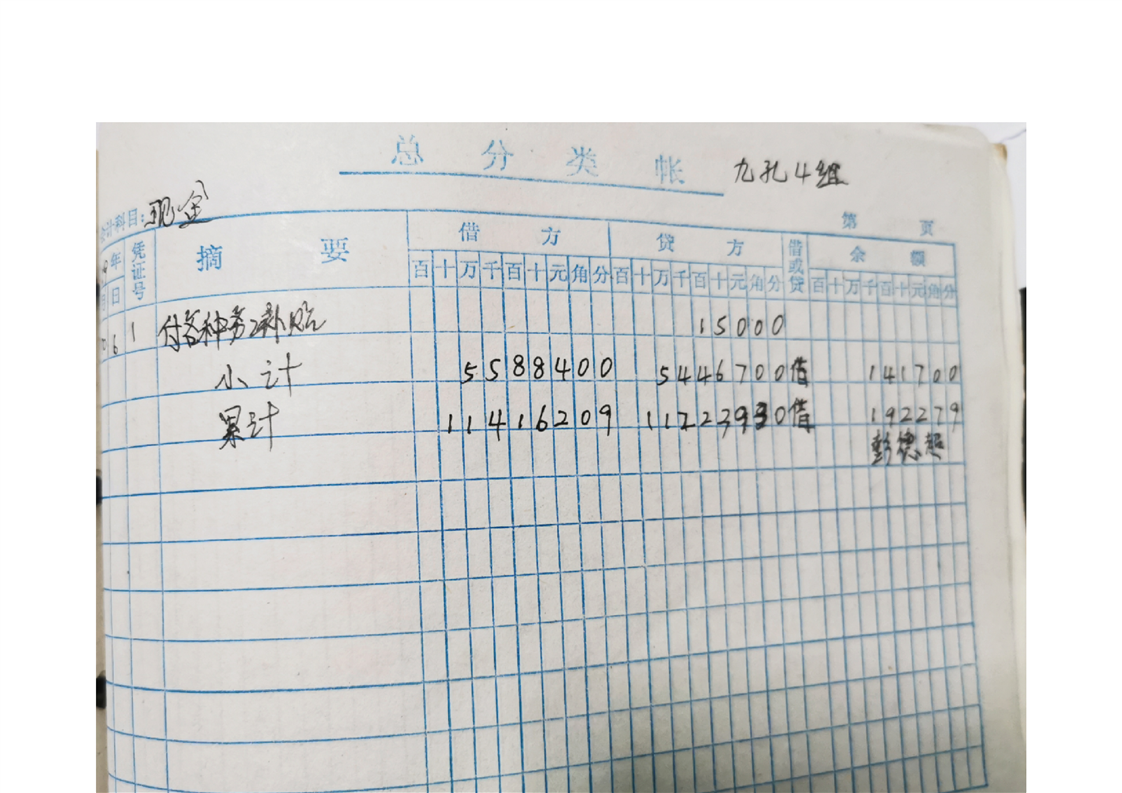 总分类帐 九孔4组
会计科目：现金 第 页
年 凭证号 摘要 借方 贷方 借或贷 余额
月 日 百十万千百十元角分 百十万千百十元角分 百十万千百十元角分
6 1 付各种务工补贴 15000
小计 5588400 5446700 借 141700
累计 11416209 11223930 借 192279
彭德超